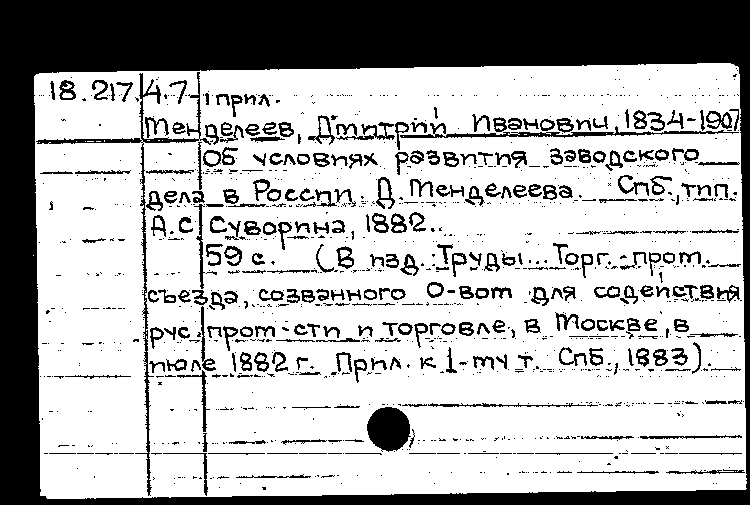 18.217.4.7-1 прил.
Менделеев, Дмитрий Иванович, 1834-1907
Об условиях развития заводского
дела в России. Д. Менделеева. Спб., тип.
А.С. Суворина, 1882..
59 с. (В изд.: Труды... Торг.-пром.
съезда, созванного О-вом для содействия
рус. пром-сти и торговле, в Москве, в
июле 1882 г. Прил. к 1-му т. Спб., 1883).